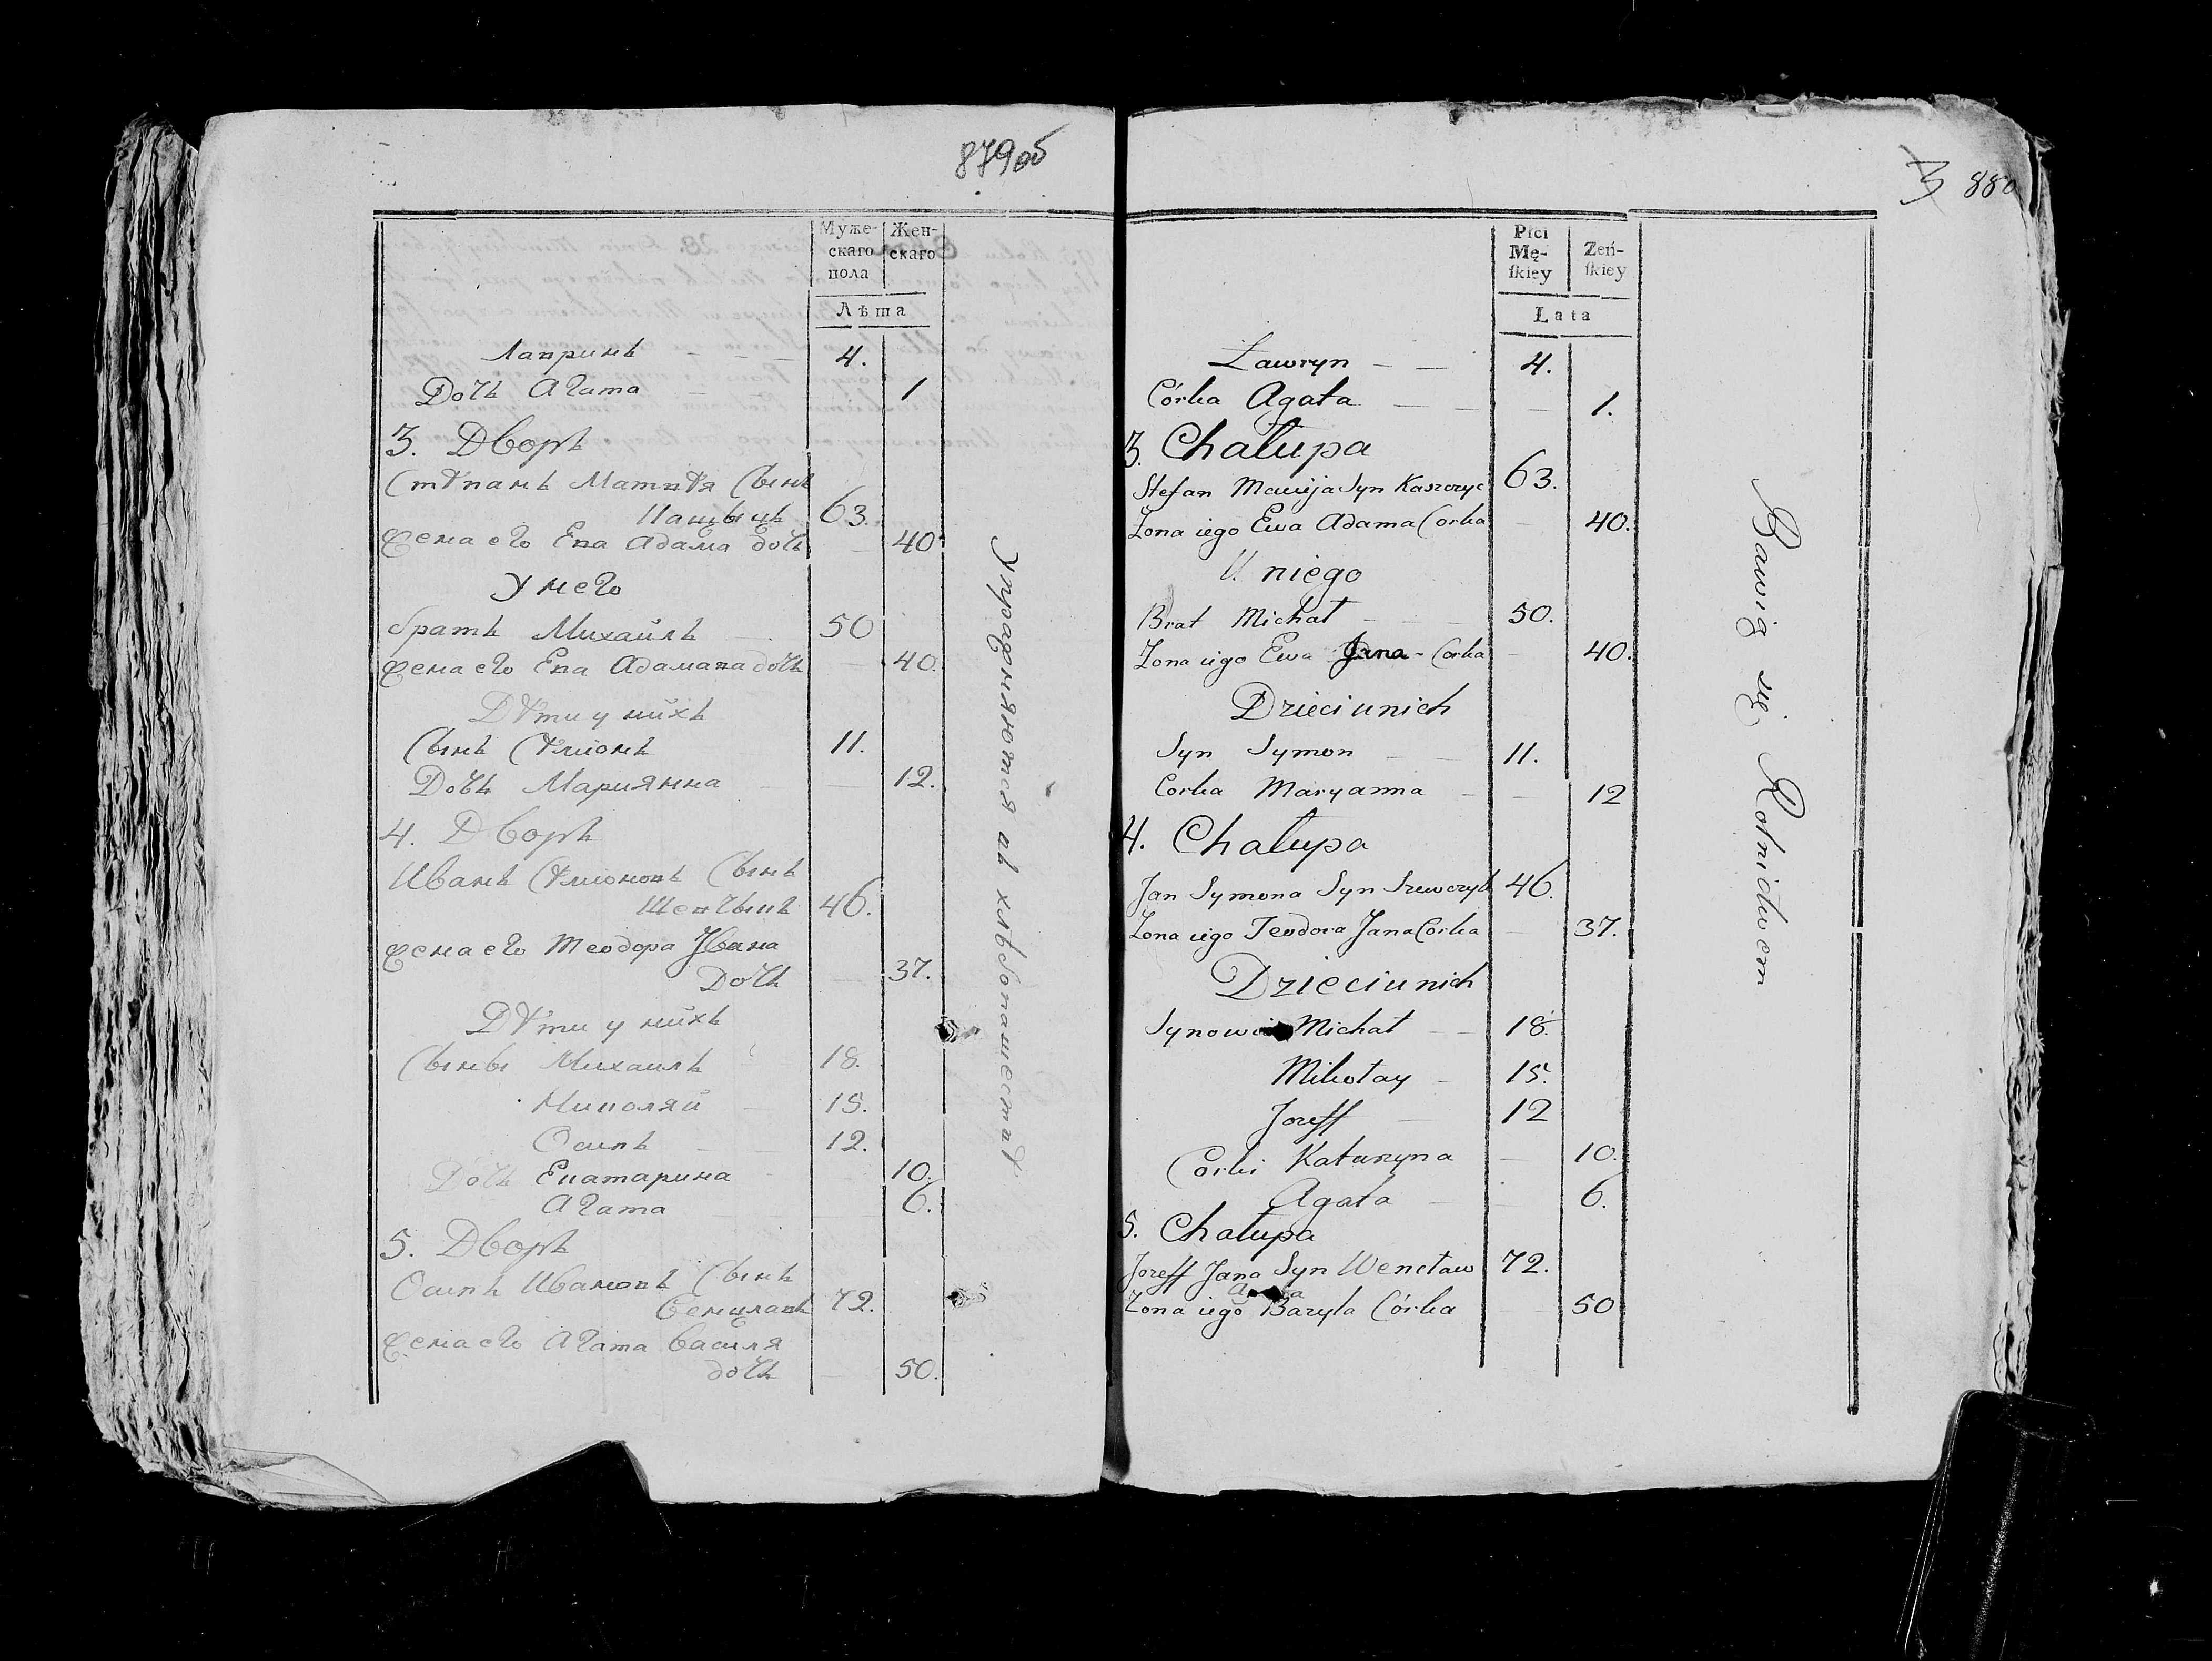 879об
Муже-
скаго
пола
Жен-
скаго
Лѣта
Лавринъ 4.
Дочь Агата 1
3. Дворъ
Стѣпанъ Матвѣя Сынъ
63.
Жена его Ева Адама дочь 40
У него
братъ Михайлъ 50
Жена его Ева Адамава дочь 40.
Дѣти у нихъ
Сынъ Сѣмїонъ 11.
Дочь Мариянна 12.
4. Дворъ
Иванъ Сѣмїоновъ Сынъ
Шевчыкъ 46.
Жена его Теодора Івана
Дочь 37.
Дѣти у нихъ
Сыны Михаилъ 18.
Николяй 15.
Осипъ 12.
Дочь Екатарина 10.
Агата 6.
5. Дворъ
Осипъ Ивановъ Сынъ
Венцлавъ 72.
Жена его Агата Василя
дочь 50.
Упражняются въ хлѣбопашествѣ
3 880
Płci
Mę-
ſkiey
Żeń-
ſkiey
Lata
Ławryn 4.
Córka Agata 1.
3. Chałupa
Stefan Macieja Syn Kaszczyc 63.
Żona iego Ewa Adama Corka 40.
U niego
Brat Michał 50.
Żona iego Ewa Jana Corka 40.
Dzieci u nich
Syn Symon 11.
Corka Maryanna 12
4. Chałupa
Jan Symona Syn Szewczyk 46.
Żona iego Teodora Jana Corka 37.
Dzieci u nich
Synowie Michał 18.
Mikołay 15.
Jozeff 12
Corki Katarzyna 10.
Agata 6.
5. Chałupa
Jozeff Jana Syn Wencław 72.
Agata
Żona iego Bazyla Córka 50
Bawią się Rolnictwem